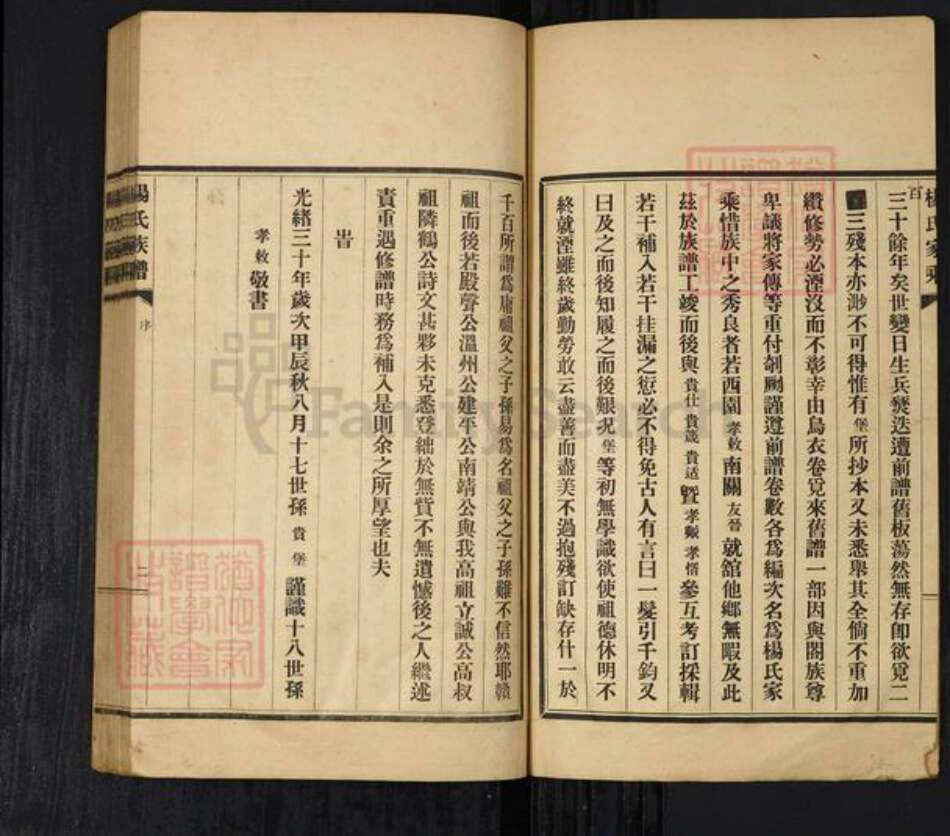 楊氏家乘
百
三十餘年矣世變日生兵燹迭遭前譜舊板蕩然無存卽欲覓二
三殘本亦渺不可得惟有堡所抄本又未悉舉其全倘不重加
纘修勢必湮沒而不彰幸由烏衣卷覓來舊譜一部因與閤族尊
卑議將家傳等重付剞劂謹遵前譜卷數各爲編次名爲楊氏家
乘惜族中之秀良者若西園孝敕南關友晉就舘他鄉無暇及此
茲於族譜工竣而後與貴仕貴箴貴适暨孝巖孝愭參互考訂採輯
若干補入若干挂漏之愆必不得免古人有言曰一髮引千鈞又
曰及之而後知履之而後艱况堡等初無學識欲使祖德休明不
終就湮雖終歲勤勞敢云盡善而盡美不過抱殘訂缺存什一於
千百所謂爲庸祖父之子孫易爲名祖父之子孫難不信然耶贛
祖而後若殿聲公溫州公建平公南靖公與我高祖立誠公高叔
祖隣鶴公詩文甚夥未克悉登絀於無貲不無遺憾後之人繼述
責重遇修譜時務爲補入是則余之所厚望也夫
旹
光緒三十年歲次甲辰秋八月十七世孫貴堡謹識十八世孫
孝敕敬書
楊氏族譜
序
二
FamilySearch